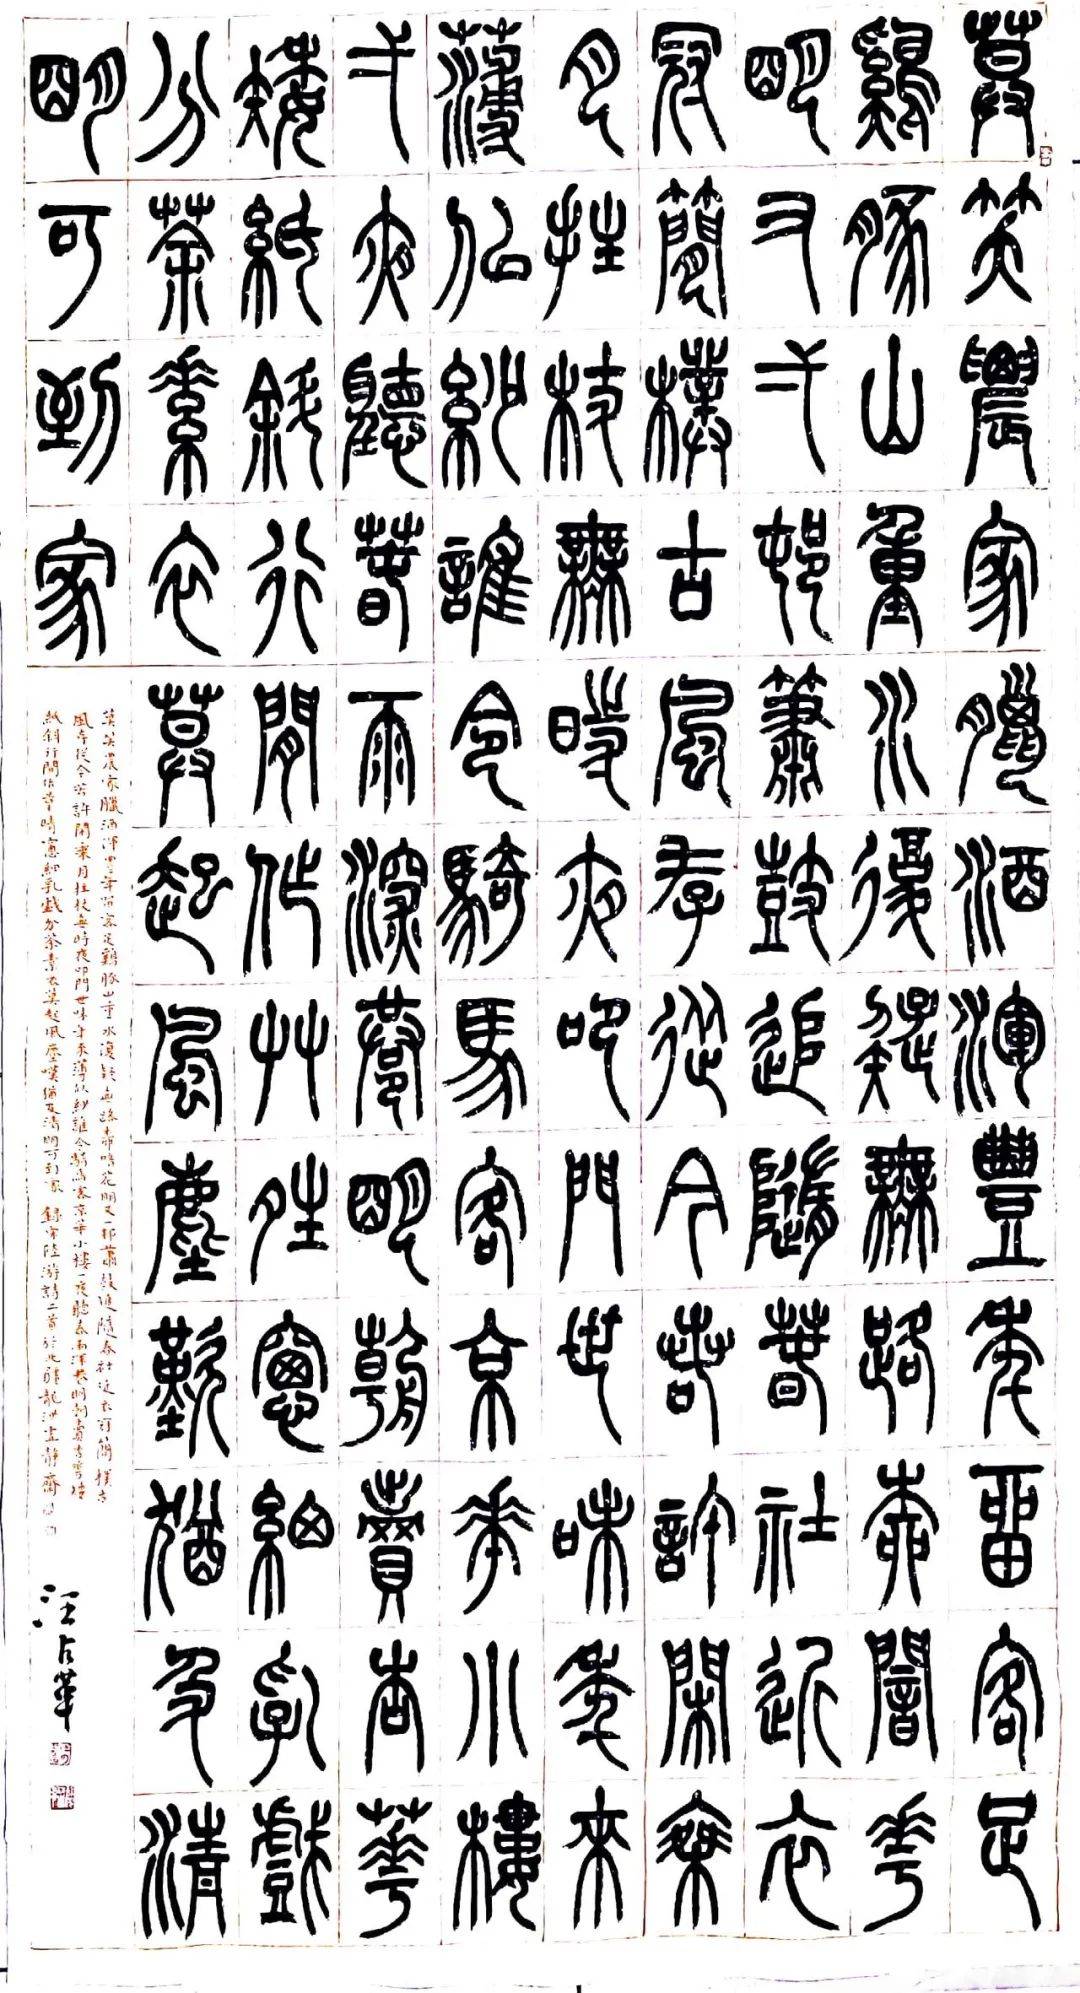 莫笑農家臘酒渾豐年留客足
雞豚山重水復疑無路柳闇華
明又弌邨簫鼓追隨春社近衣
冠簡樸古風存從今若許閑乘
月拄杖無時夜叩門世味年來
薄似紗誰令騎馬客京華小樓
弌夜聽春雨深巷明朝賣杏華
矮紙斜行閒作草晴窗細乳戲
分茶素衣莫起風塵歎猶及清
明可到家
莫笑農家臘酒渾豐年留客足雞豚山重水復疑無路柳暗花明又一邨蕭鼓追隨春社近衣冠簡樸古
風存從今若許閑乘月拄杖無時夜叩門世味年來薄似紗誰令騎馬客京華小樓一夜聽春雨深巷明朝賣杏花矮
紙斜行閒作草晴窗細乳戲分茶素衣莫起風塵嘆猶及清明可到家 錄宋陸游詩二首於北碚龍洲靜齋
汪占華